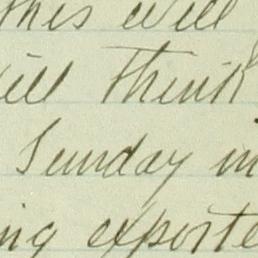 this will
will think
Sunday in
ing exporte